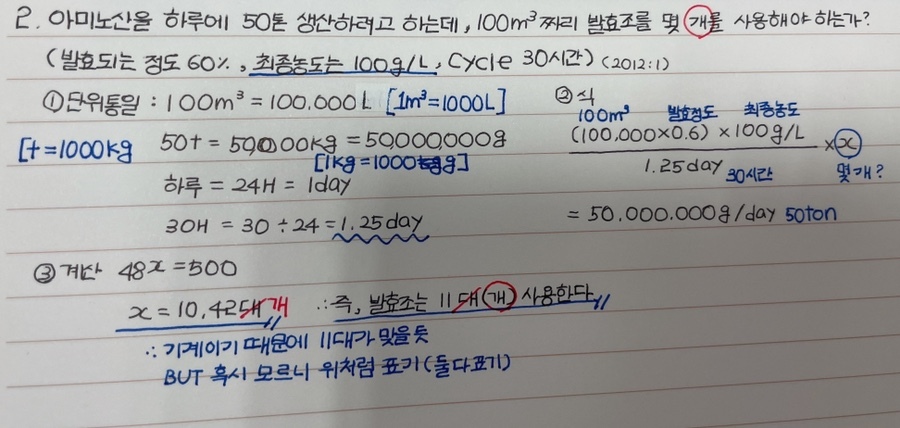 2. 아미노산을 하루에 50톤 생산하려고 하는데, 100m³짜리 발효조를 몇 개를 사용해야 하는가?
(발효되는 정도 60%, 최종농도는 100g/L, Cycle 30시간) (2012:1)
① 단위통일 : 100m³ = 100,000L [1m³=1000L]
[t=1000kg 50t = 50,000kg = 50,000,000g
[1kg=1000g]
하루 = 24H = 1day
30H = 30÷24 = 1.25day
② 식
100m³ 발효정도 최종농도
(100,000×0.6) × 100g/L
1.25day 30시간
×x 몇개?
= 50.000.000g/day 50ton
③ 계산 48x = 500
x = 10.42대 개 ∴즉, 발효조는 11대(개) 사용한다.
∴ 기계이기 때문에 11대가 맞을듯
BUT 혹시 모르니 위처럼 표기(둘다표기)